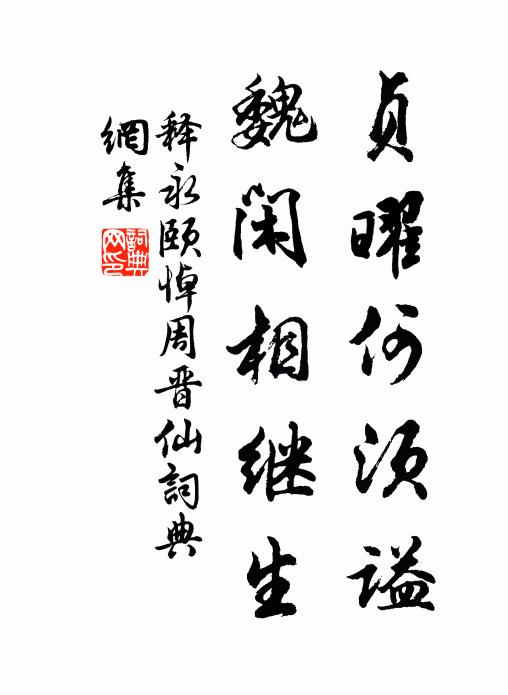 贞曜何须谥
魏闲相继生
释永颐悼周晋仙詞典
網集
詞典
网印